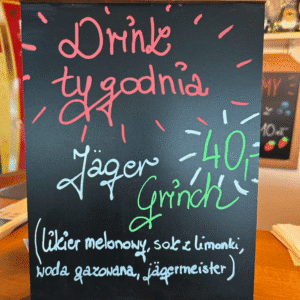 Drink
tygodnia
Jäger
Grinch
40,-
(likier melonowy, sok z limonki,
woda gazowana, jägermeister)